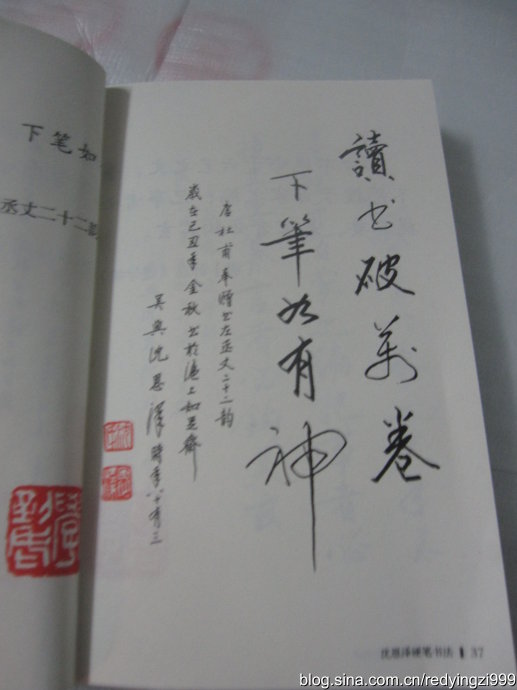 讀书破萬卷
下筆如有神
唐杜甫奉贈韋左丞丈二十二韵
歲在己丑年金秋书於滬上如是齋
吴興沈恩澤時年八十有三
下笔如
丞丈二十二韵
沈恩泽硬笔书法 37
blog.sina.com.cn/redyingzi999